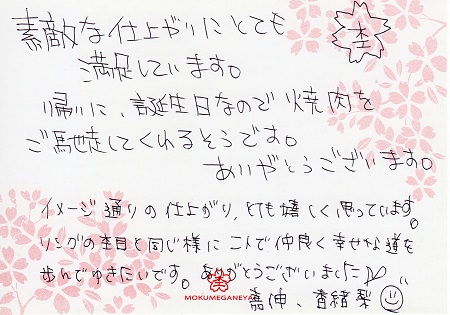 素敵な仕上がりにとても
満足しています。
帰りに、誕生日なので焼肉を
ご馳走してくれるそうです。
ありがとうございます。
イメージ通りの仕上がり、とても嬉しく思っています。
リングの杢目と同じ様に二人で仲良く幸せな道を
歩んでゆきたいです。ありがとうございました
嘉伸、香緒梨
杢
MOKUMEGANEYA